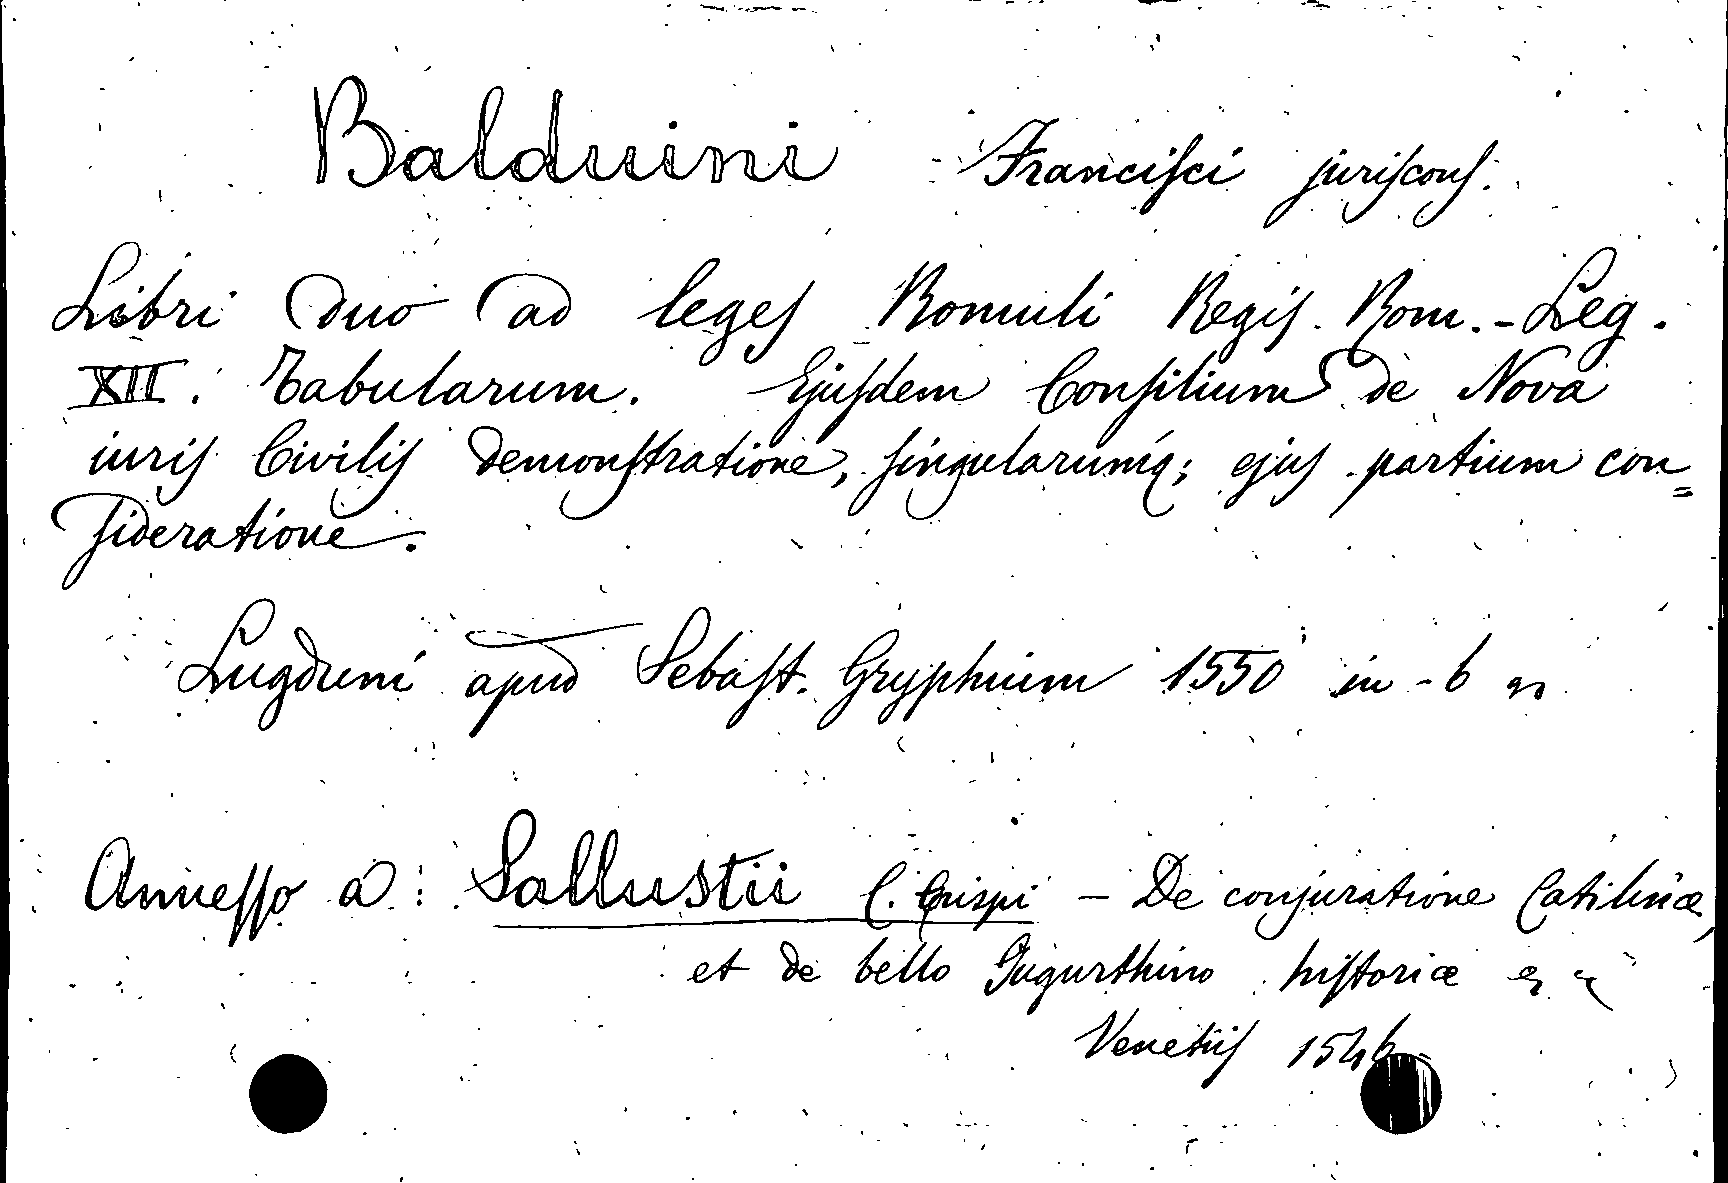 Balduini Franciſci juriſconſ.
Libri duo ad legeſ Romuli Regiſ. Rom. - Leg.
XII. Tabularum. Ejuſdem Conſilium de Nova
iuriſ Civiliſ demonſtratione, ſingularumq; ejuſ partium con=
ſideratione.
Lugduni apud Sebaſt. Gryphium 1550 in - 6
Anneſſo a: Sallustii C. Crispi - De conjuratione Catilinæ,
et de bello Jugurthino hiſtoriæ
Venetiiſ 1546